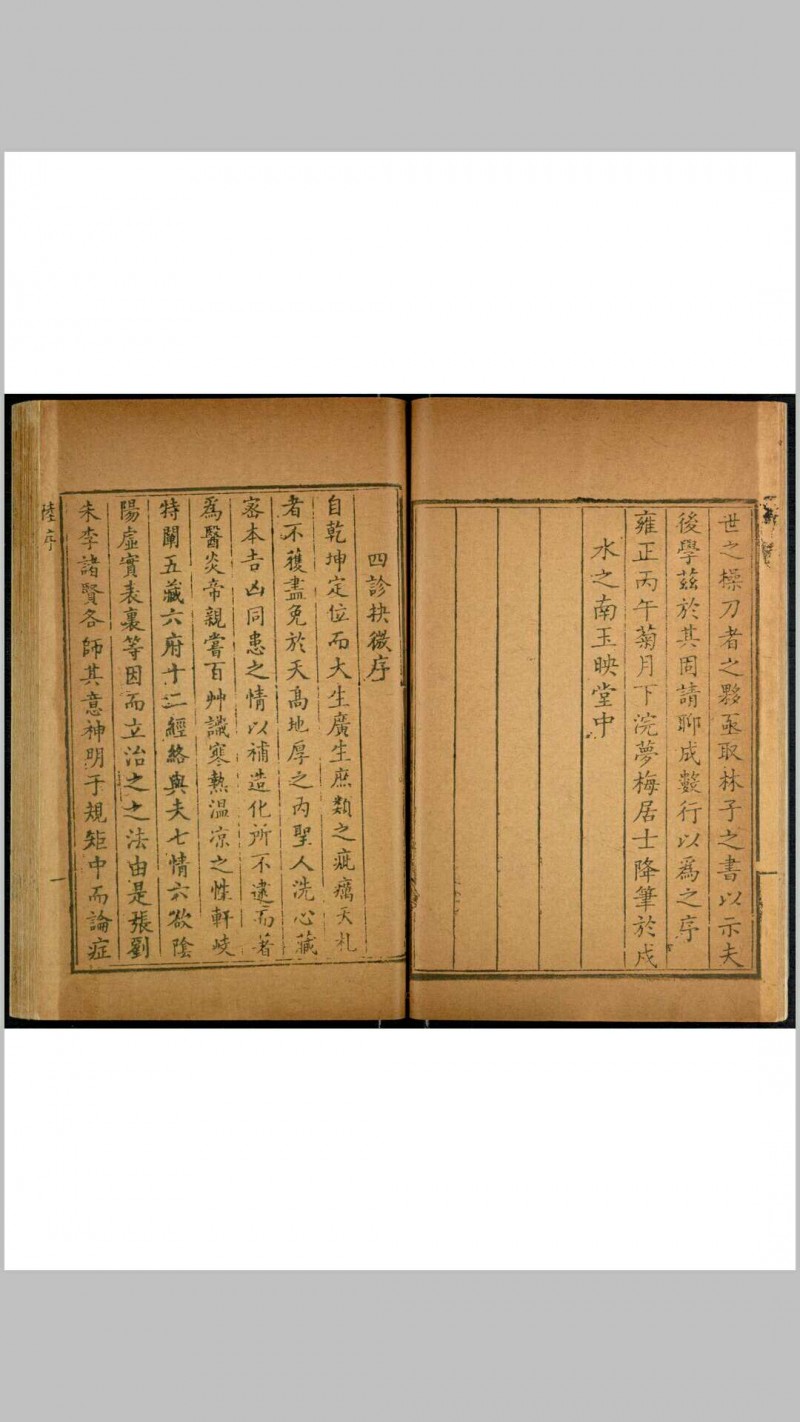 世之操刀者之夥亟取林子之書以示夫
後學茲於其固請聊成數行以爲之序
雍正丙午菊月下浣夢梅居士降筆於戍
水之南玉映堂中
四診抉微序
自乾坤定位而大生廣生庶類之疵癘夭札
者不獲盡免於天高地厚之內聖人洗心藏
密本吉凶同患之情以補造化所不逮而著
爲醫炎帝親嘗百艸識寒熱溫凉之性軒岐
特闡五藏六府十二經絡與夫七情六欲陰
陽虛實表裏等因而立治之之法由是張劉
朱李諸賢各師其意神明于規矩中而論症
陸序
一